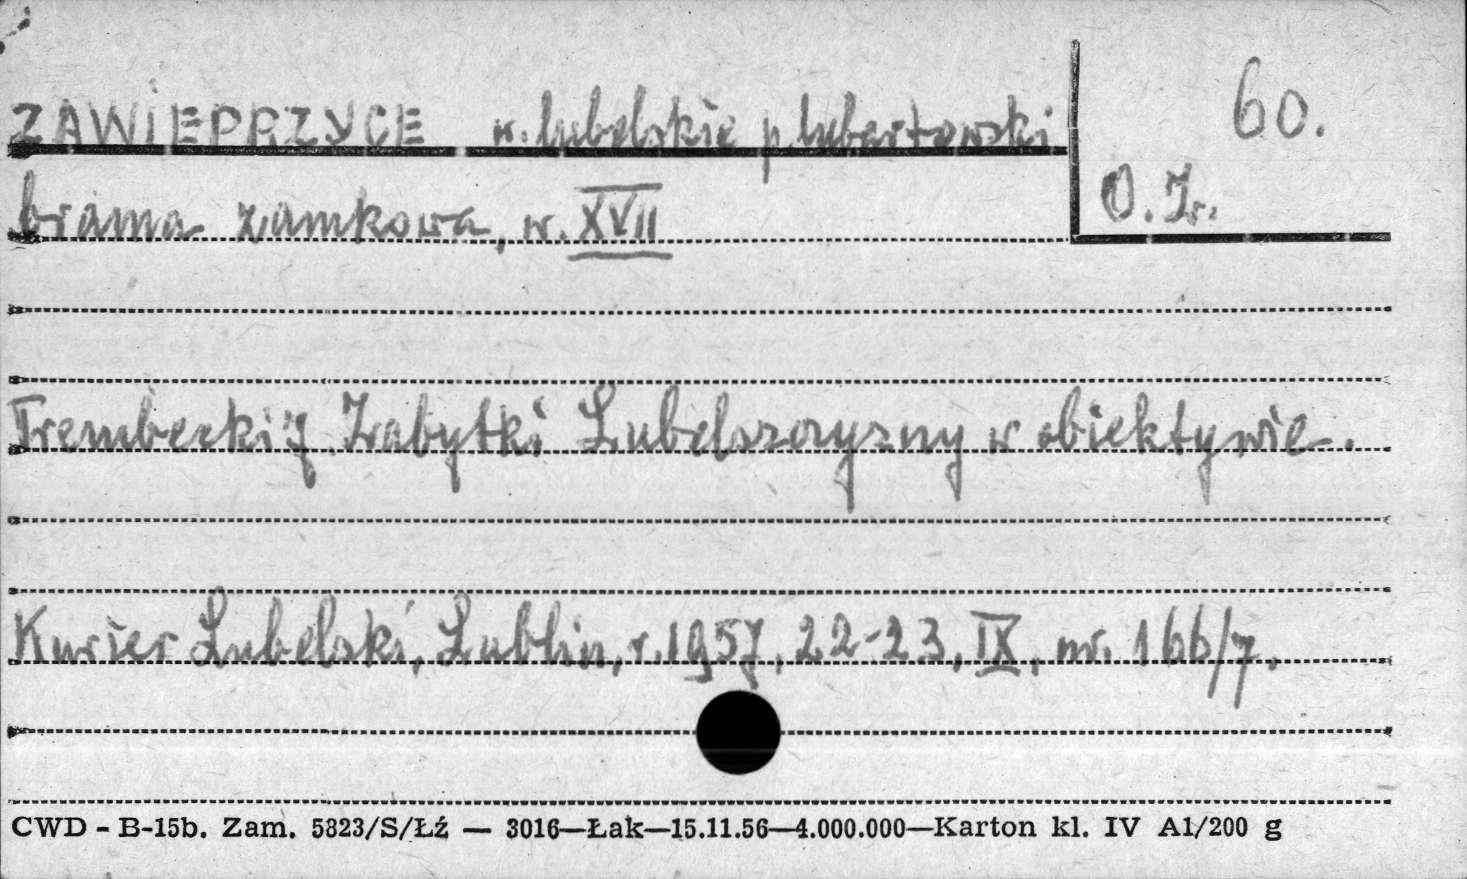 ZAWIEPRZYCE w. lubelskie p. lubartowski
60.
brama zamkowa, w. XVII
O. Z.
Trembecki J. Zabytki Lubelszczyzny w obiektywie.
Kurier Lubelski, Lublin, r. 1957, 22-23. IX, nr. 166/7.
CWD - B-15b. Zam. 5823/S/Łź — 3016—Łak—15.11.56—4.000.000—Karton kl. IV A1/200 g